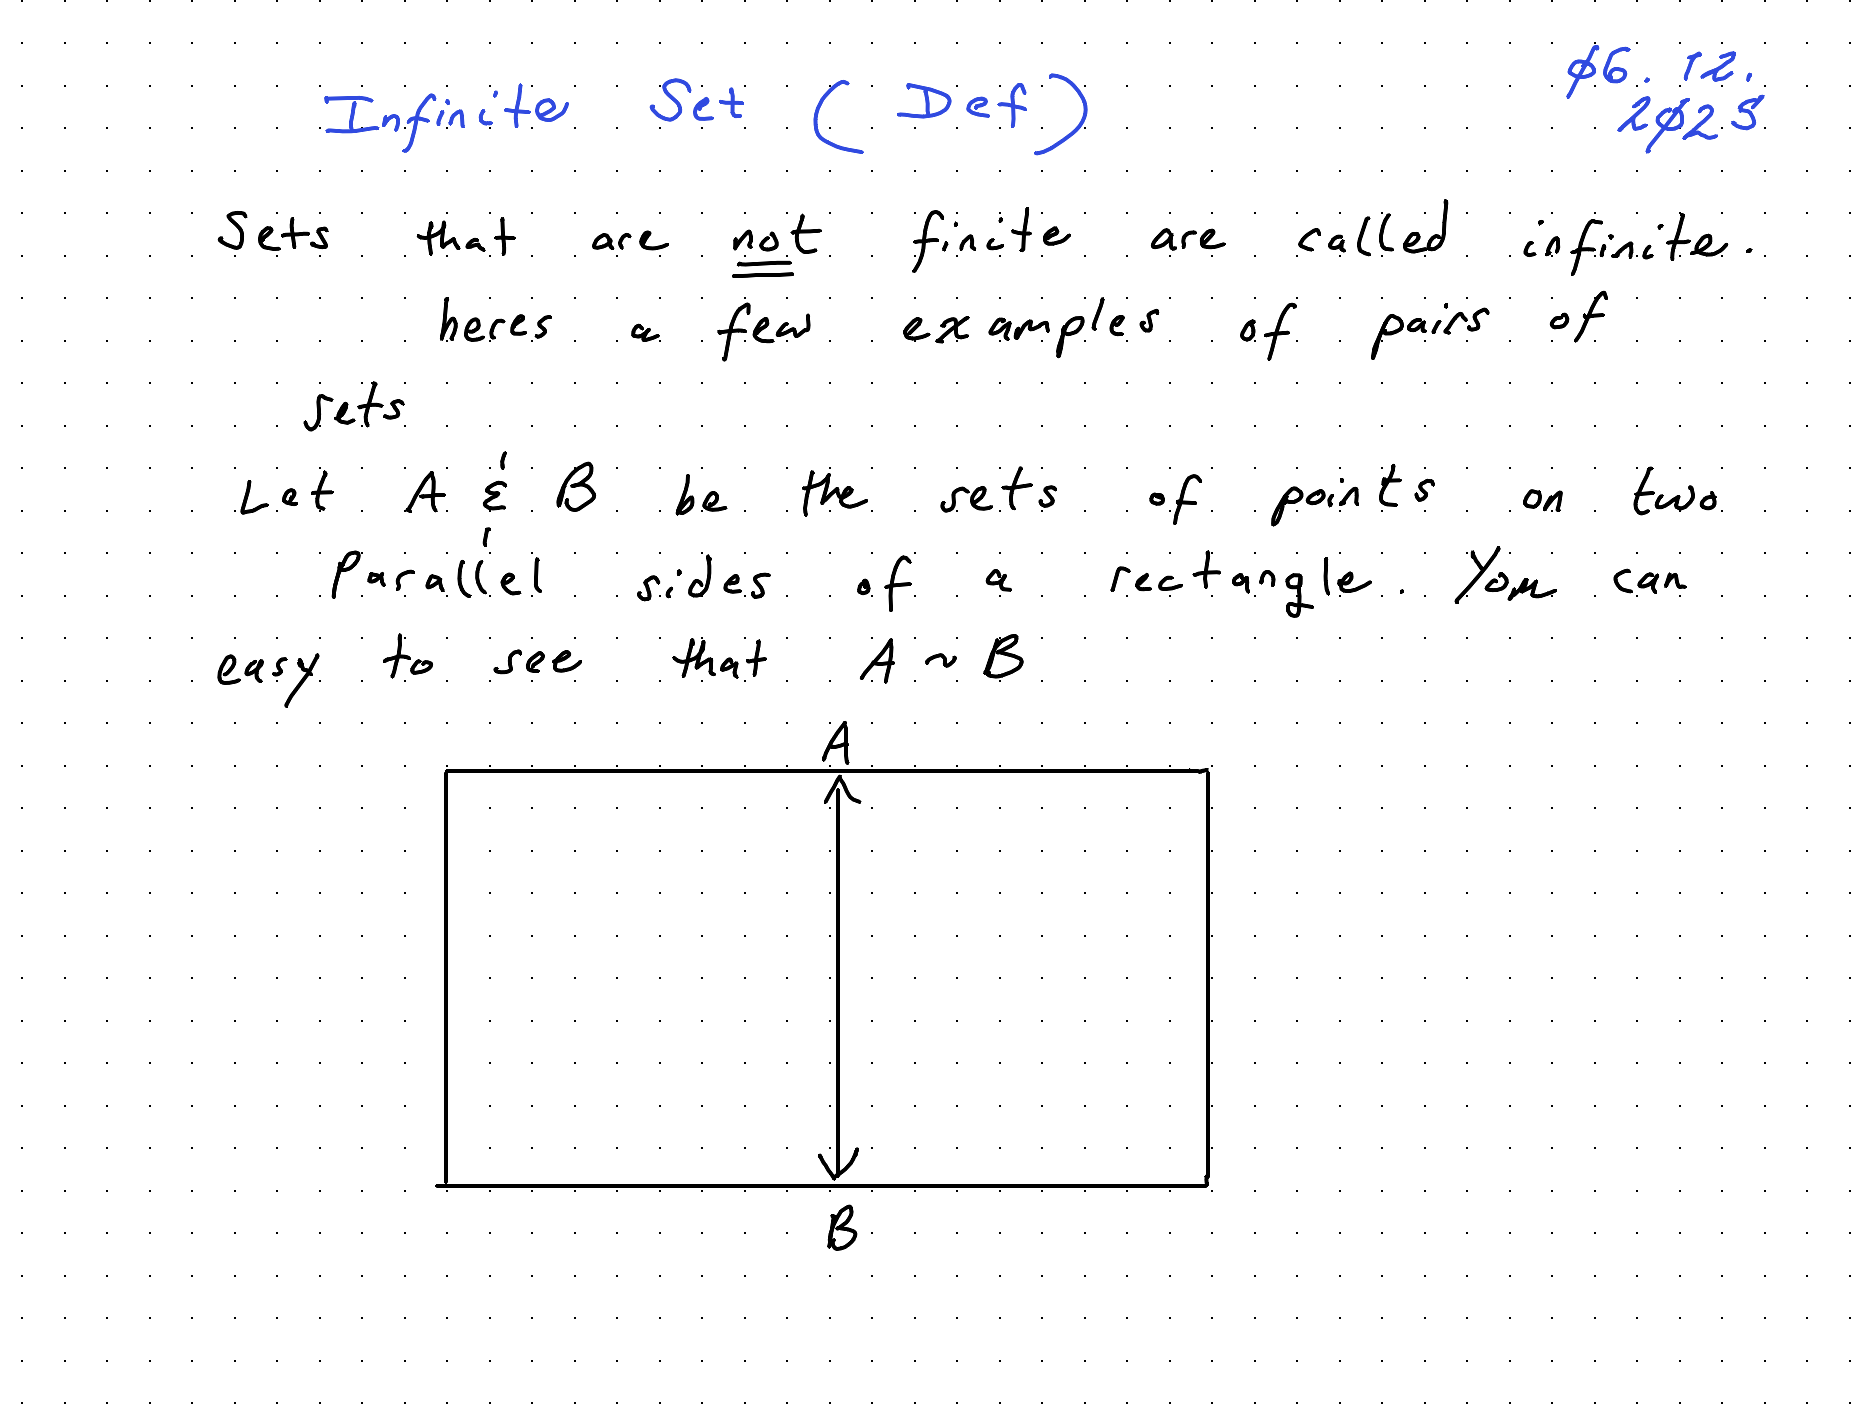 Infinite Set (Def)
06.12.
2025
Sets that are not finite are called infinite.
heres a few examples of pairs of
sets
Let A & B be the sets of points on two
Parallel sides of a rectangle. You can
easy to see that A ~ B
A
B